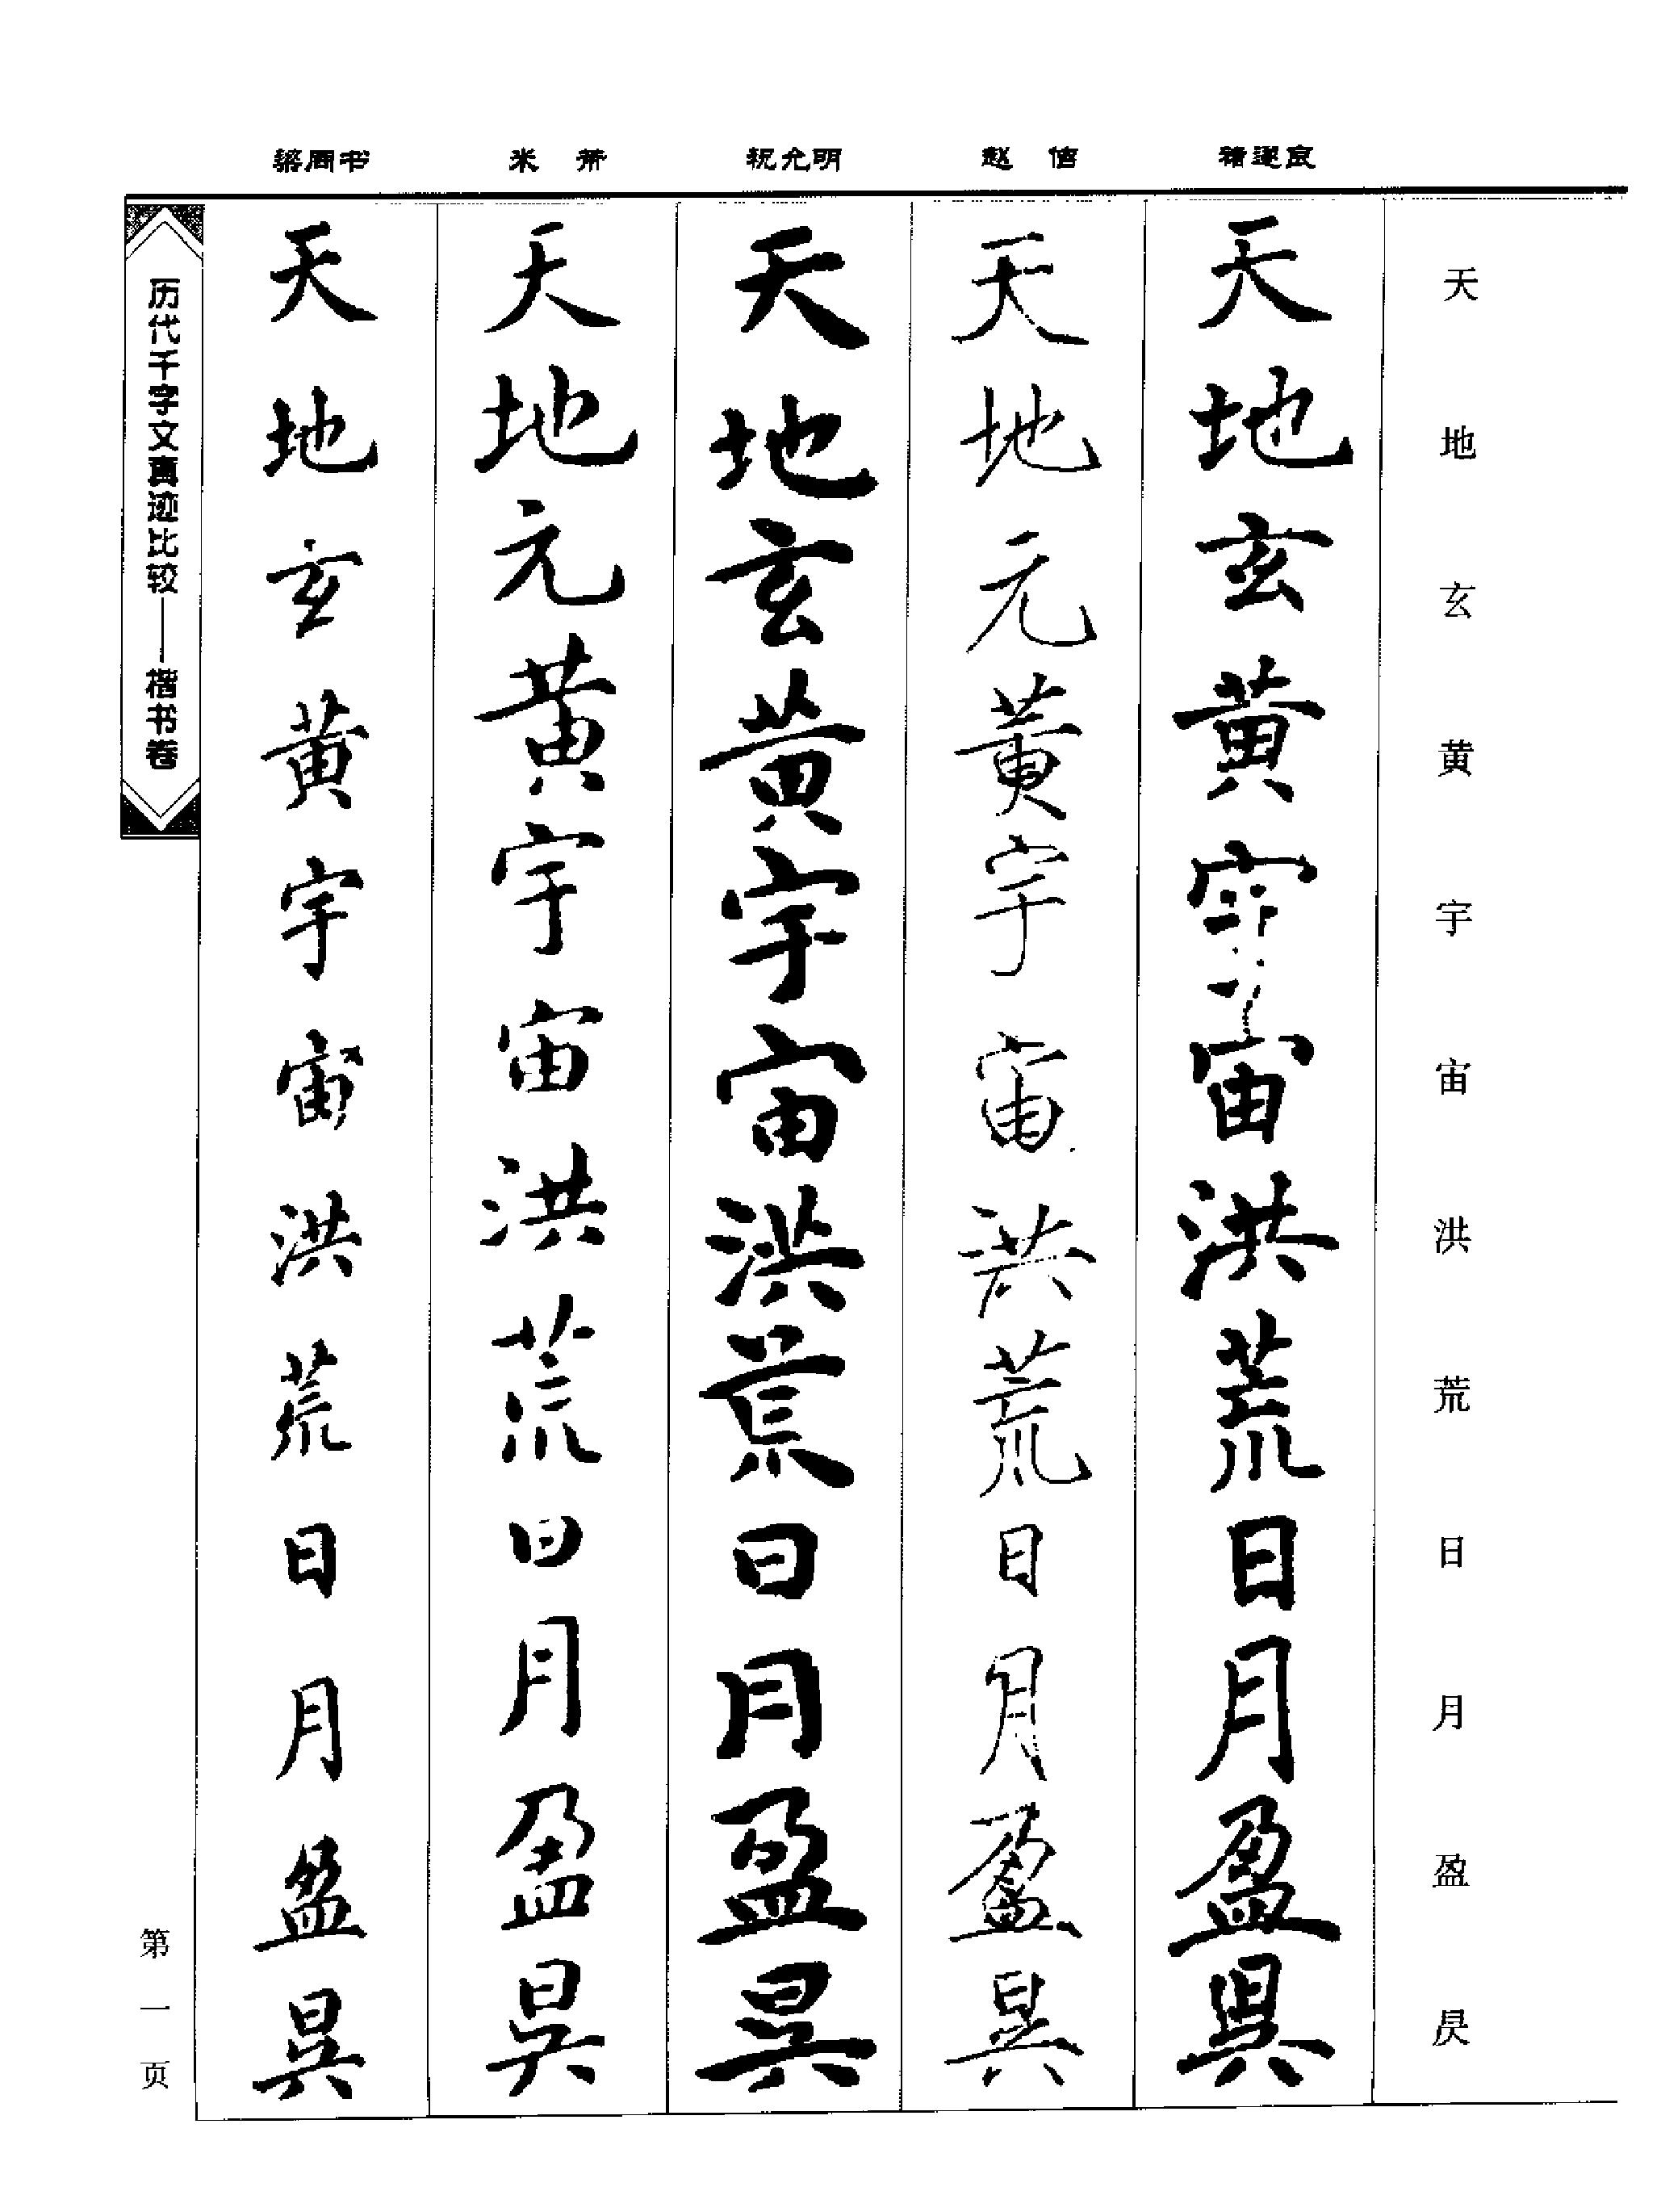 褚遂良
赵 佶
祝允明
米 芾
梁同书
天地玄黄宇宙洪荒日月盈昃
天地玄黄宇宙洪荒日月盈昃
天地元黄宇宙洪荒日月盈昃
天地玄黄宇宙洪荒日月盈昃
天地元黄宇宙洪荒日月盈昃
天地玄黄宇宙洪荒日月盈昃
历代千字文真迹比较——楷书卷
第一页